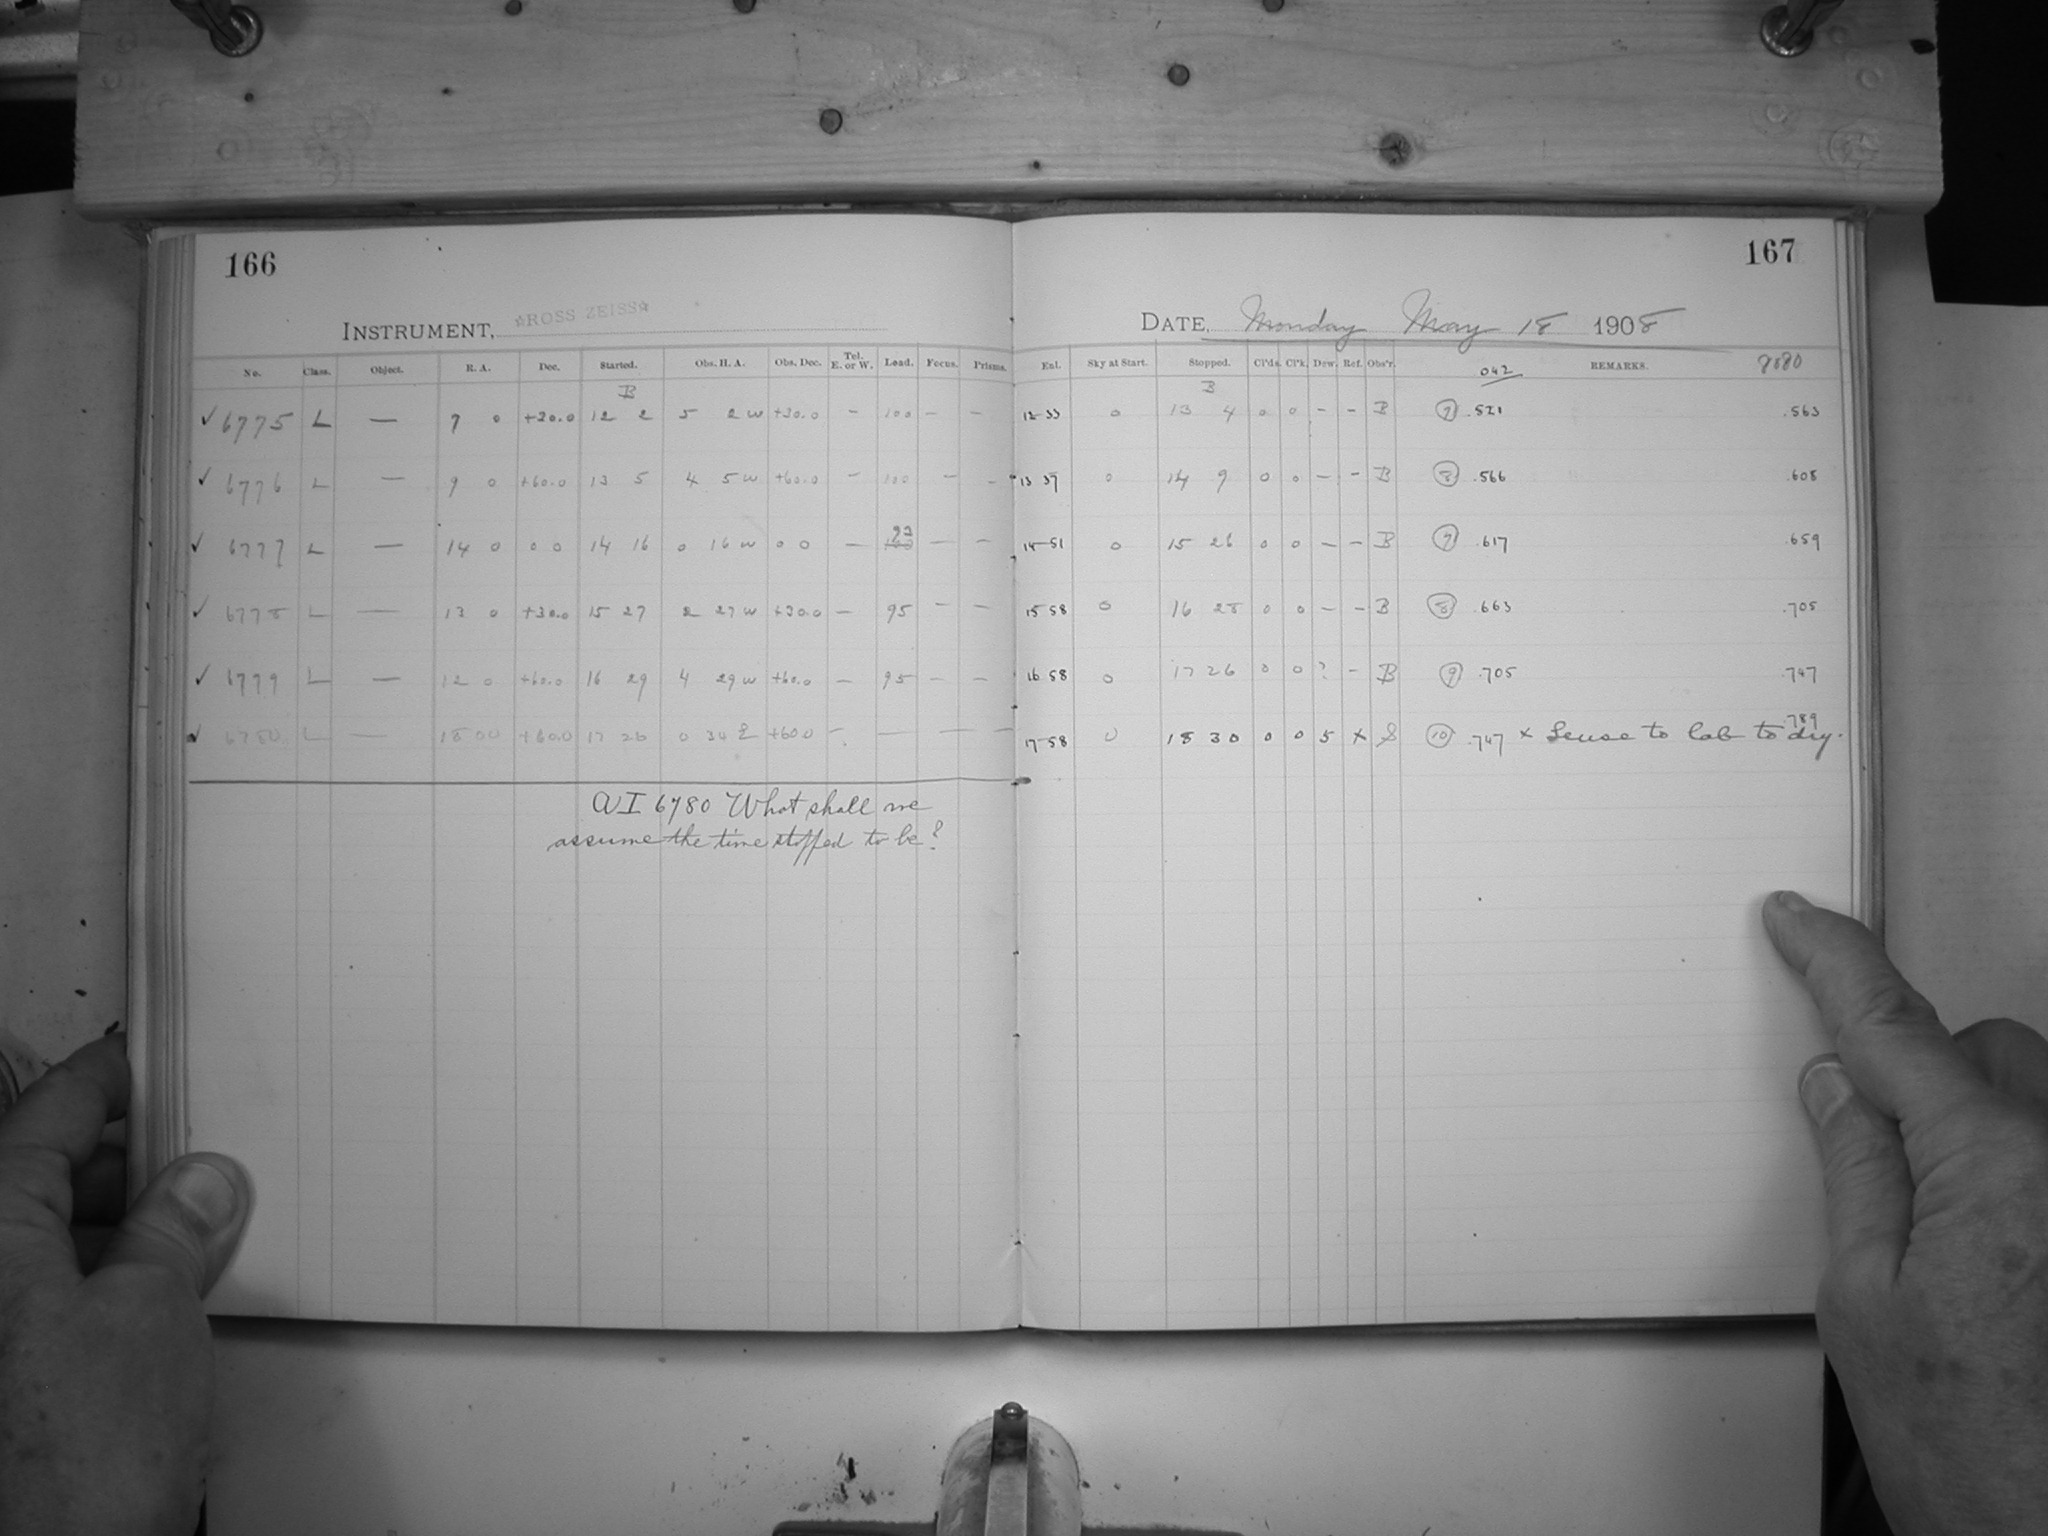 166
INSTRUMENT, ☆ROSS ZEISS☆
No. Class. Object. R. A. Dec. Started. Obs. H. A. Obs. Dec. Tel. E. or W. Load. Focus. Prisms.
B
✓ 6775 L — 7 0 +30.0 12 2 5 2 W +30.0 – 100 – –
✓ 6776 L — 9 0 +60.0 13 5 4 5 W +60.0 – 100 – –
✓ 6777 L — 14 0 0 0 14 16 0 16 W 0 0 – – –
✓ 6778 L — 13 0 +30.0 15 27 2 27 W +30.0 – 95 – –
✓ 6779 L — 12 0 +60.0 16 29 4 29 W +60.0 – 95 – –
✓ 6780 L — 18 00 +60.0 17 26 0 34 E +60.0 – — — —
AI 6780 What shall we
assume the time stopped to be?
167
DATE, Monday May 18 1908
Enl. Sky at Start. Stopped. Cl'ds. Cl'k. Dew. Ref. Obs'r. 042 REMARKS. 8080
B
12-33 0 13 4 0 0 – – B (7) .521 .563
13 37 0 14 9 0 0 – – B (8) .566 .608
14-51 0 15 26 0 0 – – B (9) .617 .659
15 58 0 16 28 0 0 – – B (8) .663 .705
16 58 0 17 26 0 0 ? – B (9) .705 .747
17-58 0 18 30 0 0 5 x S (10) .747 x Lense to lab to dry. .789